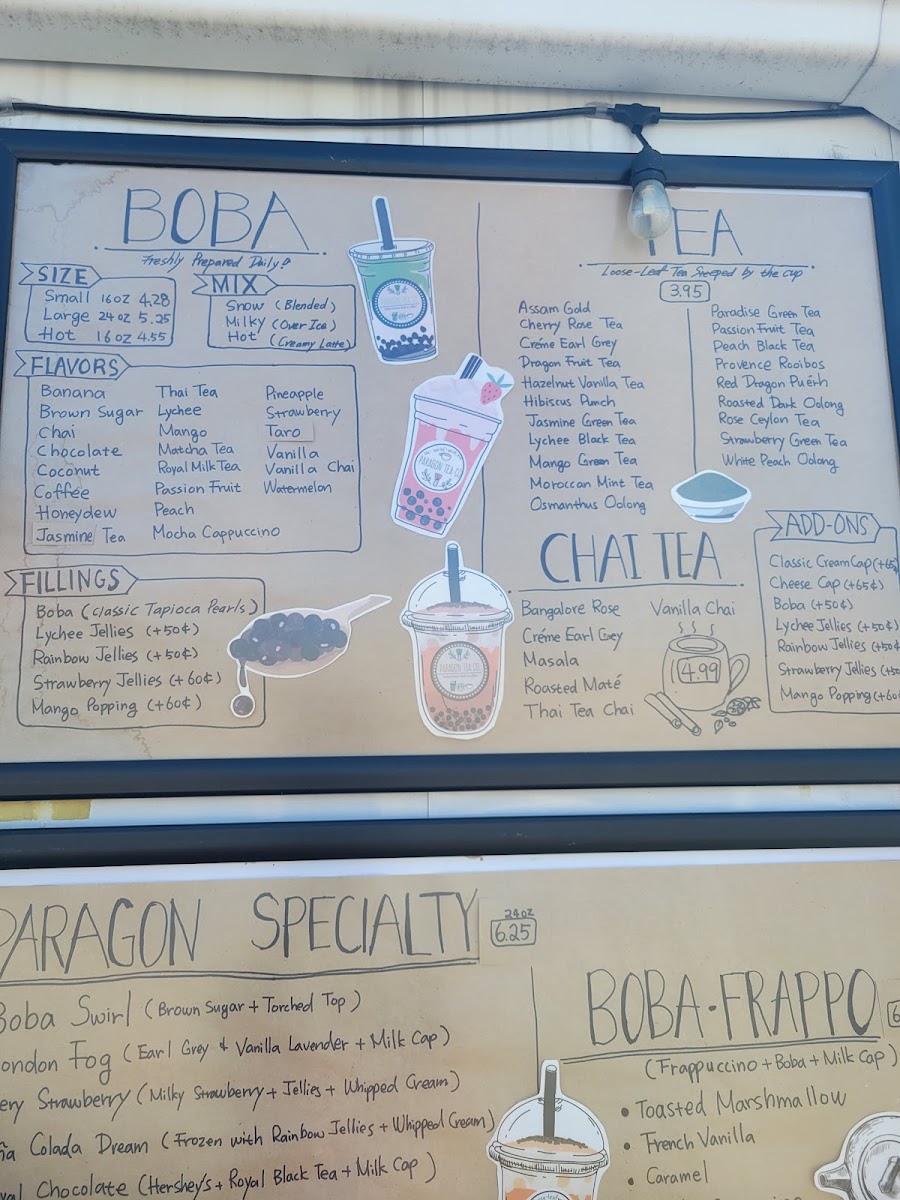 BOBA
Freshly Prepared Daily!
SIZE
Small 16oz 4.28
Large 24oz 5.25
Hot 16oz 4.55
MIX
Snow (Blended)
Milky (Over Ice)
Hot (Creamy Latte)
FLAVORS
Banana
Brown Sugar
Chai
Chocolate
Coconut
Coffee
Honeydew
Jasmine Tea
Thai Tea
Lychee
Mango
Matcha Tea
Royal Milk Tea
Passion Fruit
Peach
Mocha Cappuccino
Pineapple
Strawberry
Taro
Vanilla
Vanilla Chai
Watermelon
FILLINGS
Boba (Classic Tapioca Pearls)
Lychee Jellies (+50¢)
Rainbow Jellies (+50¢)
Strawberry Jellies (+60¢)
Mango Popping (+60¢)
PARAGON TEA CO.
PARAGON TEA CO.
TEA
Loose-Leaf Tea Steeped by the cup
3.95
Assam Gold
Cherry Rose Tea
Créme Earl Grey
Dragon Fruit Tea
Hazelnut Vanilla Tea
Hibiscus Punch
Jasmine Green Tea
Lychee Black Tea
Mango Green Tea
Moroccan Mint Tea
Osmanthus Oolong
Paradise Green Tea
Passion Fruit Tea
Peach Black Tea
Provence Rooibos
Red Dragon Puérh
Roasted Dark Oolong
Rose Ceylon Tea
Strawberry Green Tea
White Peach Oolong
CHAI TEA
Bangalore Rose
Créme Earl Grey
Masala
Roasted Maté
Thai Tea Chai
Vanilla Chai
4.99
ADD-ONS
Classic Cream Cap (+65
Cheese Cap (+65¢)
Boba (+50¢)
Lychee Jellies (+50¢)
Rainbow Jellies (+50¢
Strawberry Jellies (+50
Mango Popping (+60
PARAGON SPECIALTY
24oz
6.25
Boba Swirl (Brown Sugar + Torched Top)
ondon Fog (Earl Grey & Vanilla Lavender + Milk Cap)
ery Strawberry (Milky Strawberry + Jellies + Whipped Cream)
ña Colada Dream (Frozen with Rainbow Jellies + Whipped Cream)
yal Chocolate (Hershey's + Royal Black Tea + Milk Cap)
BOBA-FRAPPO
6
(Frappuccino + Boba + Milk Cap)
• Toasted Marshmallow
• French Vanilla
• Caramel